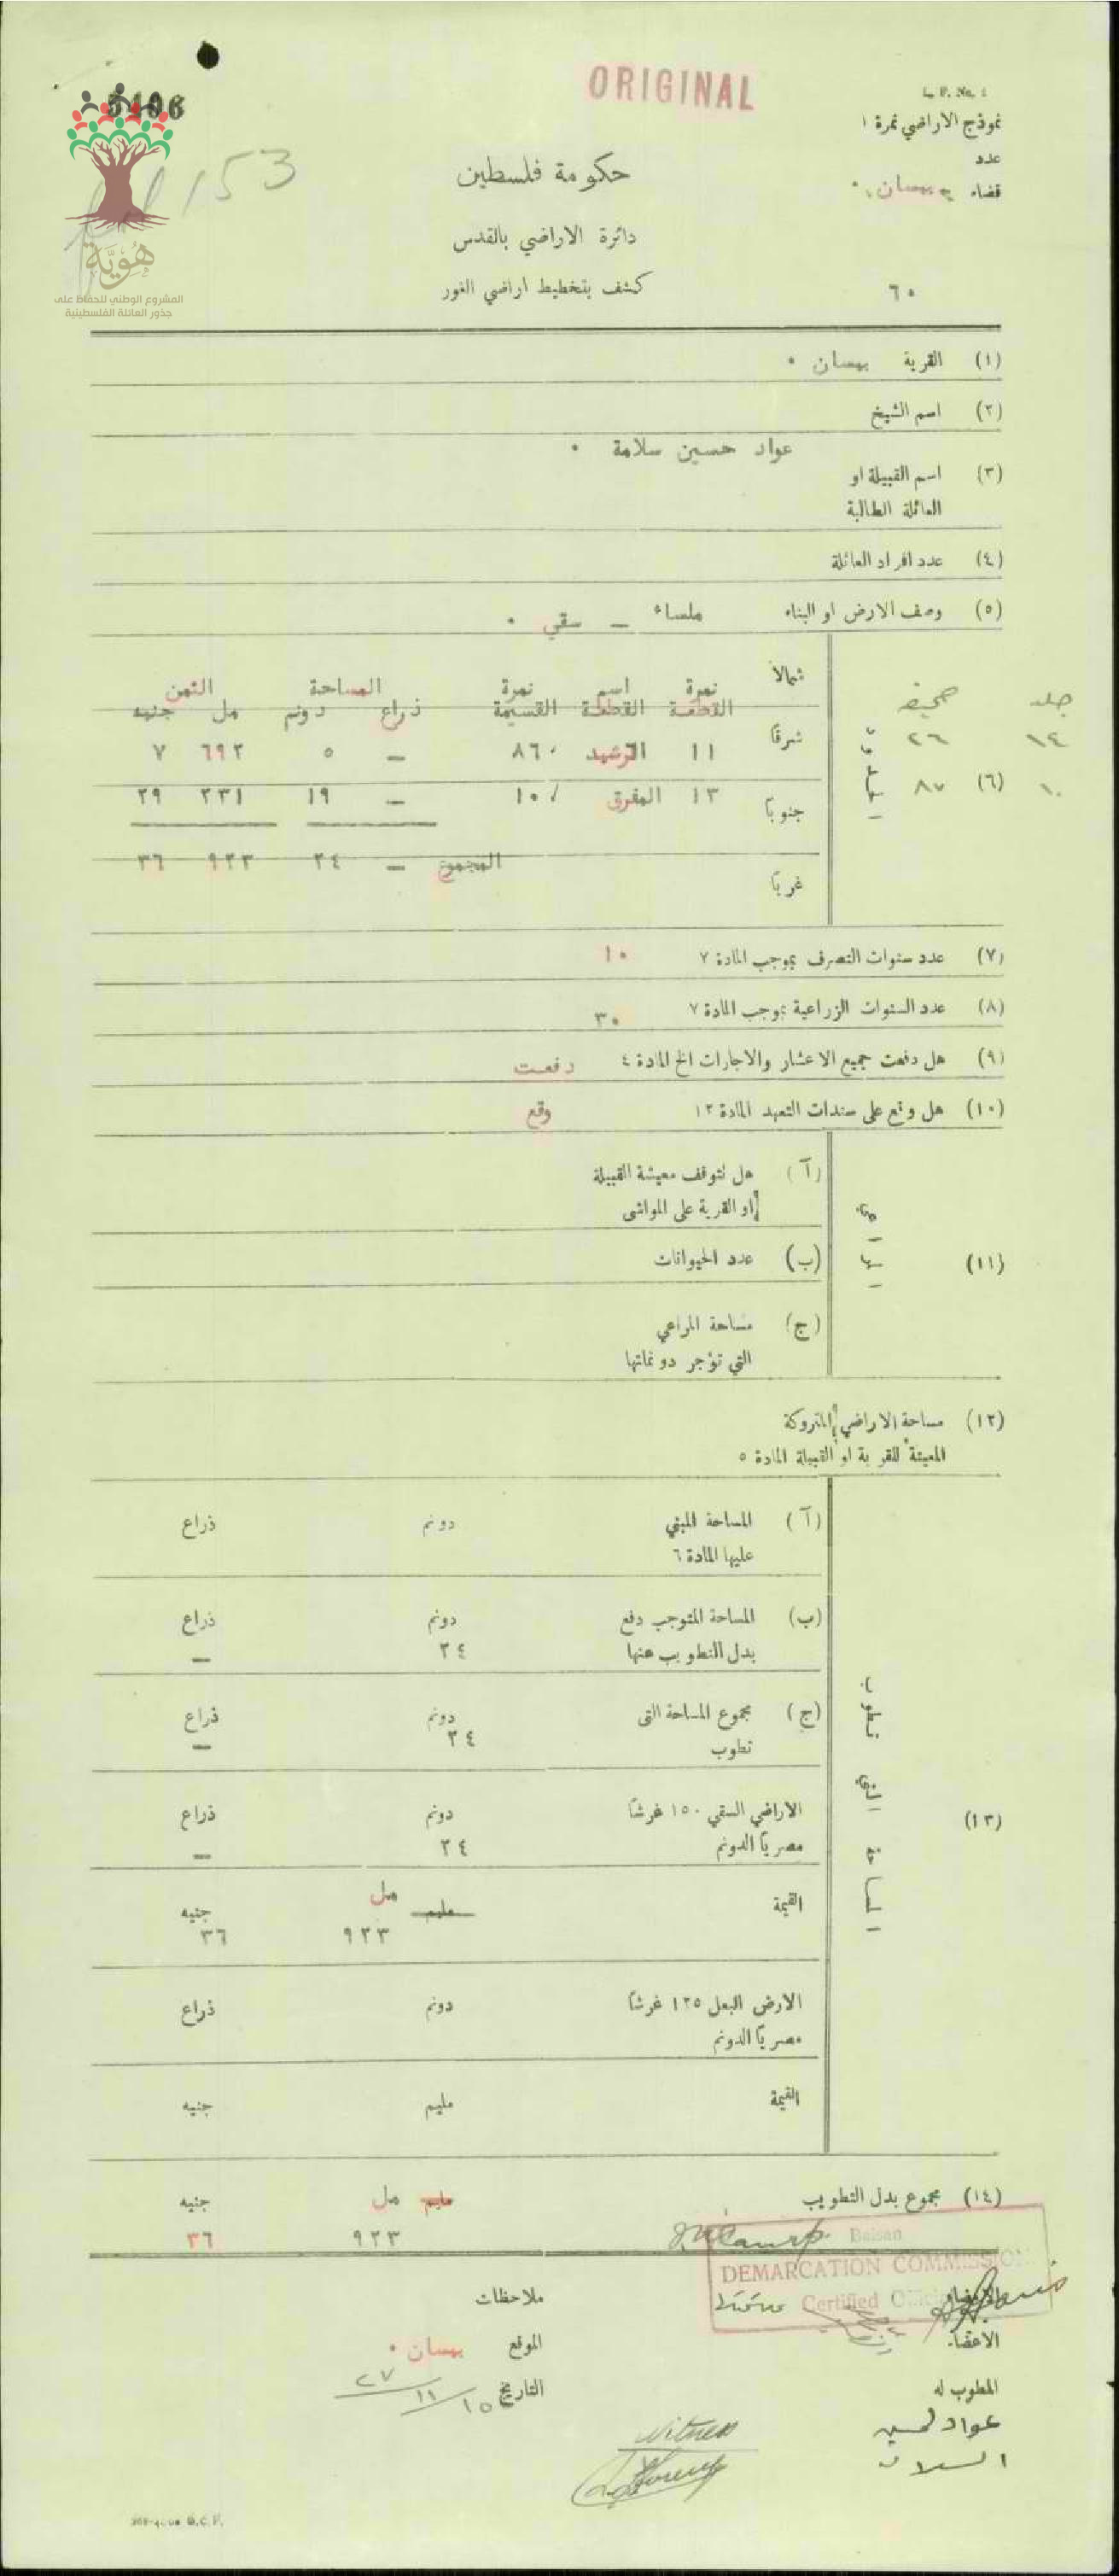 ORIGINAL
L. P. No. 1
نموذج الاراضي نمرة ١
عدد
قضاء بيسان.
153
حكومة فلسطين
دائرة الاراضي بالقدس
كشف بتخطيط اراضي الغور
٦٠
هُوِيَّة
المشروع الوطني للحفاظ على
جذور العائلة الفلسطينية
(١) القرية بيسان .
(٢) اسم الشيخ
عواد حسين سلامة .
(٣) اسم القبيلة او
العائلة الطالبة
(٤) عدد افراد العائلة
(٥) وصف الارض او البناء ملساء — سقي .
جلد صحيفة
١٤ ٢٦
١٠ ٨٧
(٦) الحدود
شمالاً
شرقاً
جنوباً
غرباً
نمرة القطعة اسم القطعة نمرة القسيمة المساحة الثمن
ذراع دونم مل جنيه
١١ الرشيد ٨٦٠ — ٥ ٦٩٢ ٧
١٣ المفرق ١٠١ — ١٩ ٢٣١ ٢٩
المجموع — ٢٤ ٩٢٣ ٣٦
(٧) عدد سنوات التصرف بموجب المادة ٧ ١٠
(٨) عدد السنوات الزراعية بموجب المادة ٧ ٣٠
(٩) هل دفعت جميع الاعشار والاجارات الخ المادة ٤ دفعت
(١٠) هل وقع على سندات التعهد المادة ١٢ وقع
(١١) المراعي
(آ) هل تتوقف معيشة القبيلة
او القرية على المواشي
(ب) عدد الحيوانات
(ج) مساحة المراعي
التي تؤجر دونماتها
(١٢) مساحة الاراضي المتروكة
المعينة للقرية او القبيلة المادة ٥
(١٣) المساحة التي تطوب
(آ) المساحة المبني دونم ذراع
عليها المادة ٦
(ب) المساحة المتوجب دفع دونم ذراع
بدل التطويب عنها ٢٤ —
(ج) مجموع المساحة التي دونم ذراع
تطوب ٢٤ —
الاراضي السقي ١٥٠ غرشاً دونم ذراع
مصرياً الدونم ٢٤ —
القيمة مليم مل جنيه
٩٢٣ ٣٦
الارض البعل ١٢٥ غرشاً دونم ذراع
مصرياً الدونم
القيمة مليم جنيه
(١٤) مجموع بدل التطويب مليم مل جنيه
٩٢٣ ٣٦
Baisan
DEMARCATION COMMISSION
Certified
الاعضاء
ملاحظات
الموقع بيسان .
التاريخ ١٥/١١/٢٧
المطوب له
عواد لحسين
السلامه
Witness